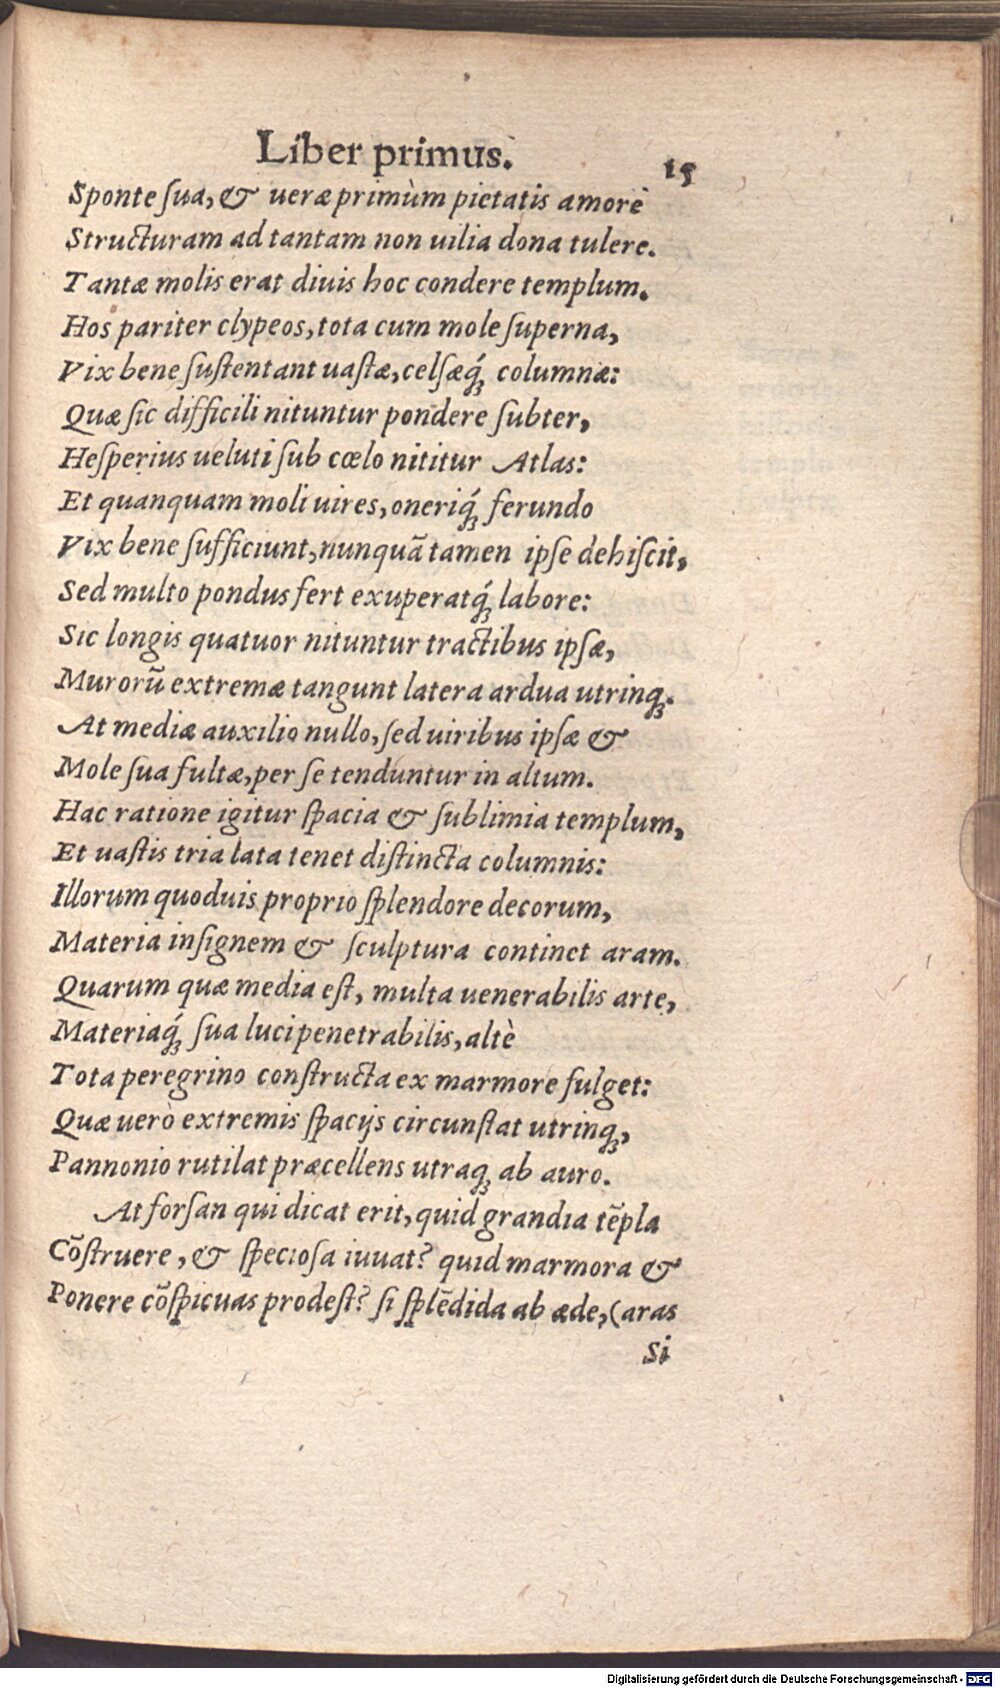 Liber primus. 15
Sponte ſua, & ueræ primùm pietatis amore
Structuram ad tantam non uilia dona tulere.
Tantæ molis erat diuis hoc condere templum.
Hos pariter clypeos, tota cum mole ſuperna,
Vix bene ſuſtentant uaſtæ, celſæq́ꝫ columnæ:
Quæ ſic difficili nituntur pondere ſubter,
Heſperius ueluti ſub cœlo nititur Atlas:
Et quanquam moli uires, oneriq́ꝫ ferundo
Vix bene ſufficiunt, nunquā tamen ipſe dehiſcit,
Sed multo pondus fert exuperatq́ꝫ labore:
Sic longis quatuor nituntur tractibus ipſæ,
Murorū extremæ tangunt latera ardua utrinqꝫ.
At mediæ auxilio nullo, ſed uiribus ipſæ &
Mole ſua fultæ, per ſe tenduntur in altum.
Hac ratione igitur ſpacia & ſublimia templum,
Et uaſtis tria lata tenet diſtincta columnis:
Illorum quoduis proprio ſplendore decorum,
Materia inſignem & ſculptura continet aram.
Quarum quæ media eſt, multa uenerabilis arte,
Materiaq́ꝫ ſua luci penetrabilis, altè
Tota peregrino conſtructa ex marmore fulget:
Quæ uerò extremis ſpacijs circunſtat utrinqꝫ,
Pannonio rutilat præcellens utraqꝫ ab auro.
At forſan qui dicat erit, quid grandia tēpla
Cōſtruere, & ſpecioſa iuuat? quid marmora &
Ponere cōſpicuas prodeſt? ſi ſplēdida ab æde, (aras
Si
Digitalisierung gefördert durch die Deutsche Forschungsgemeinschaft - DFG